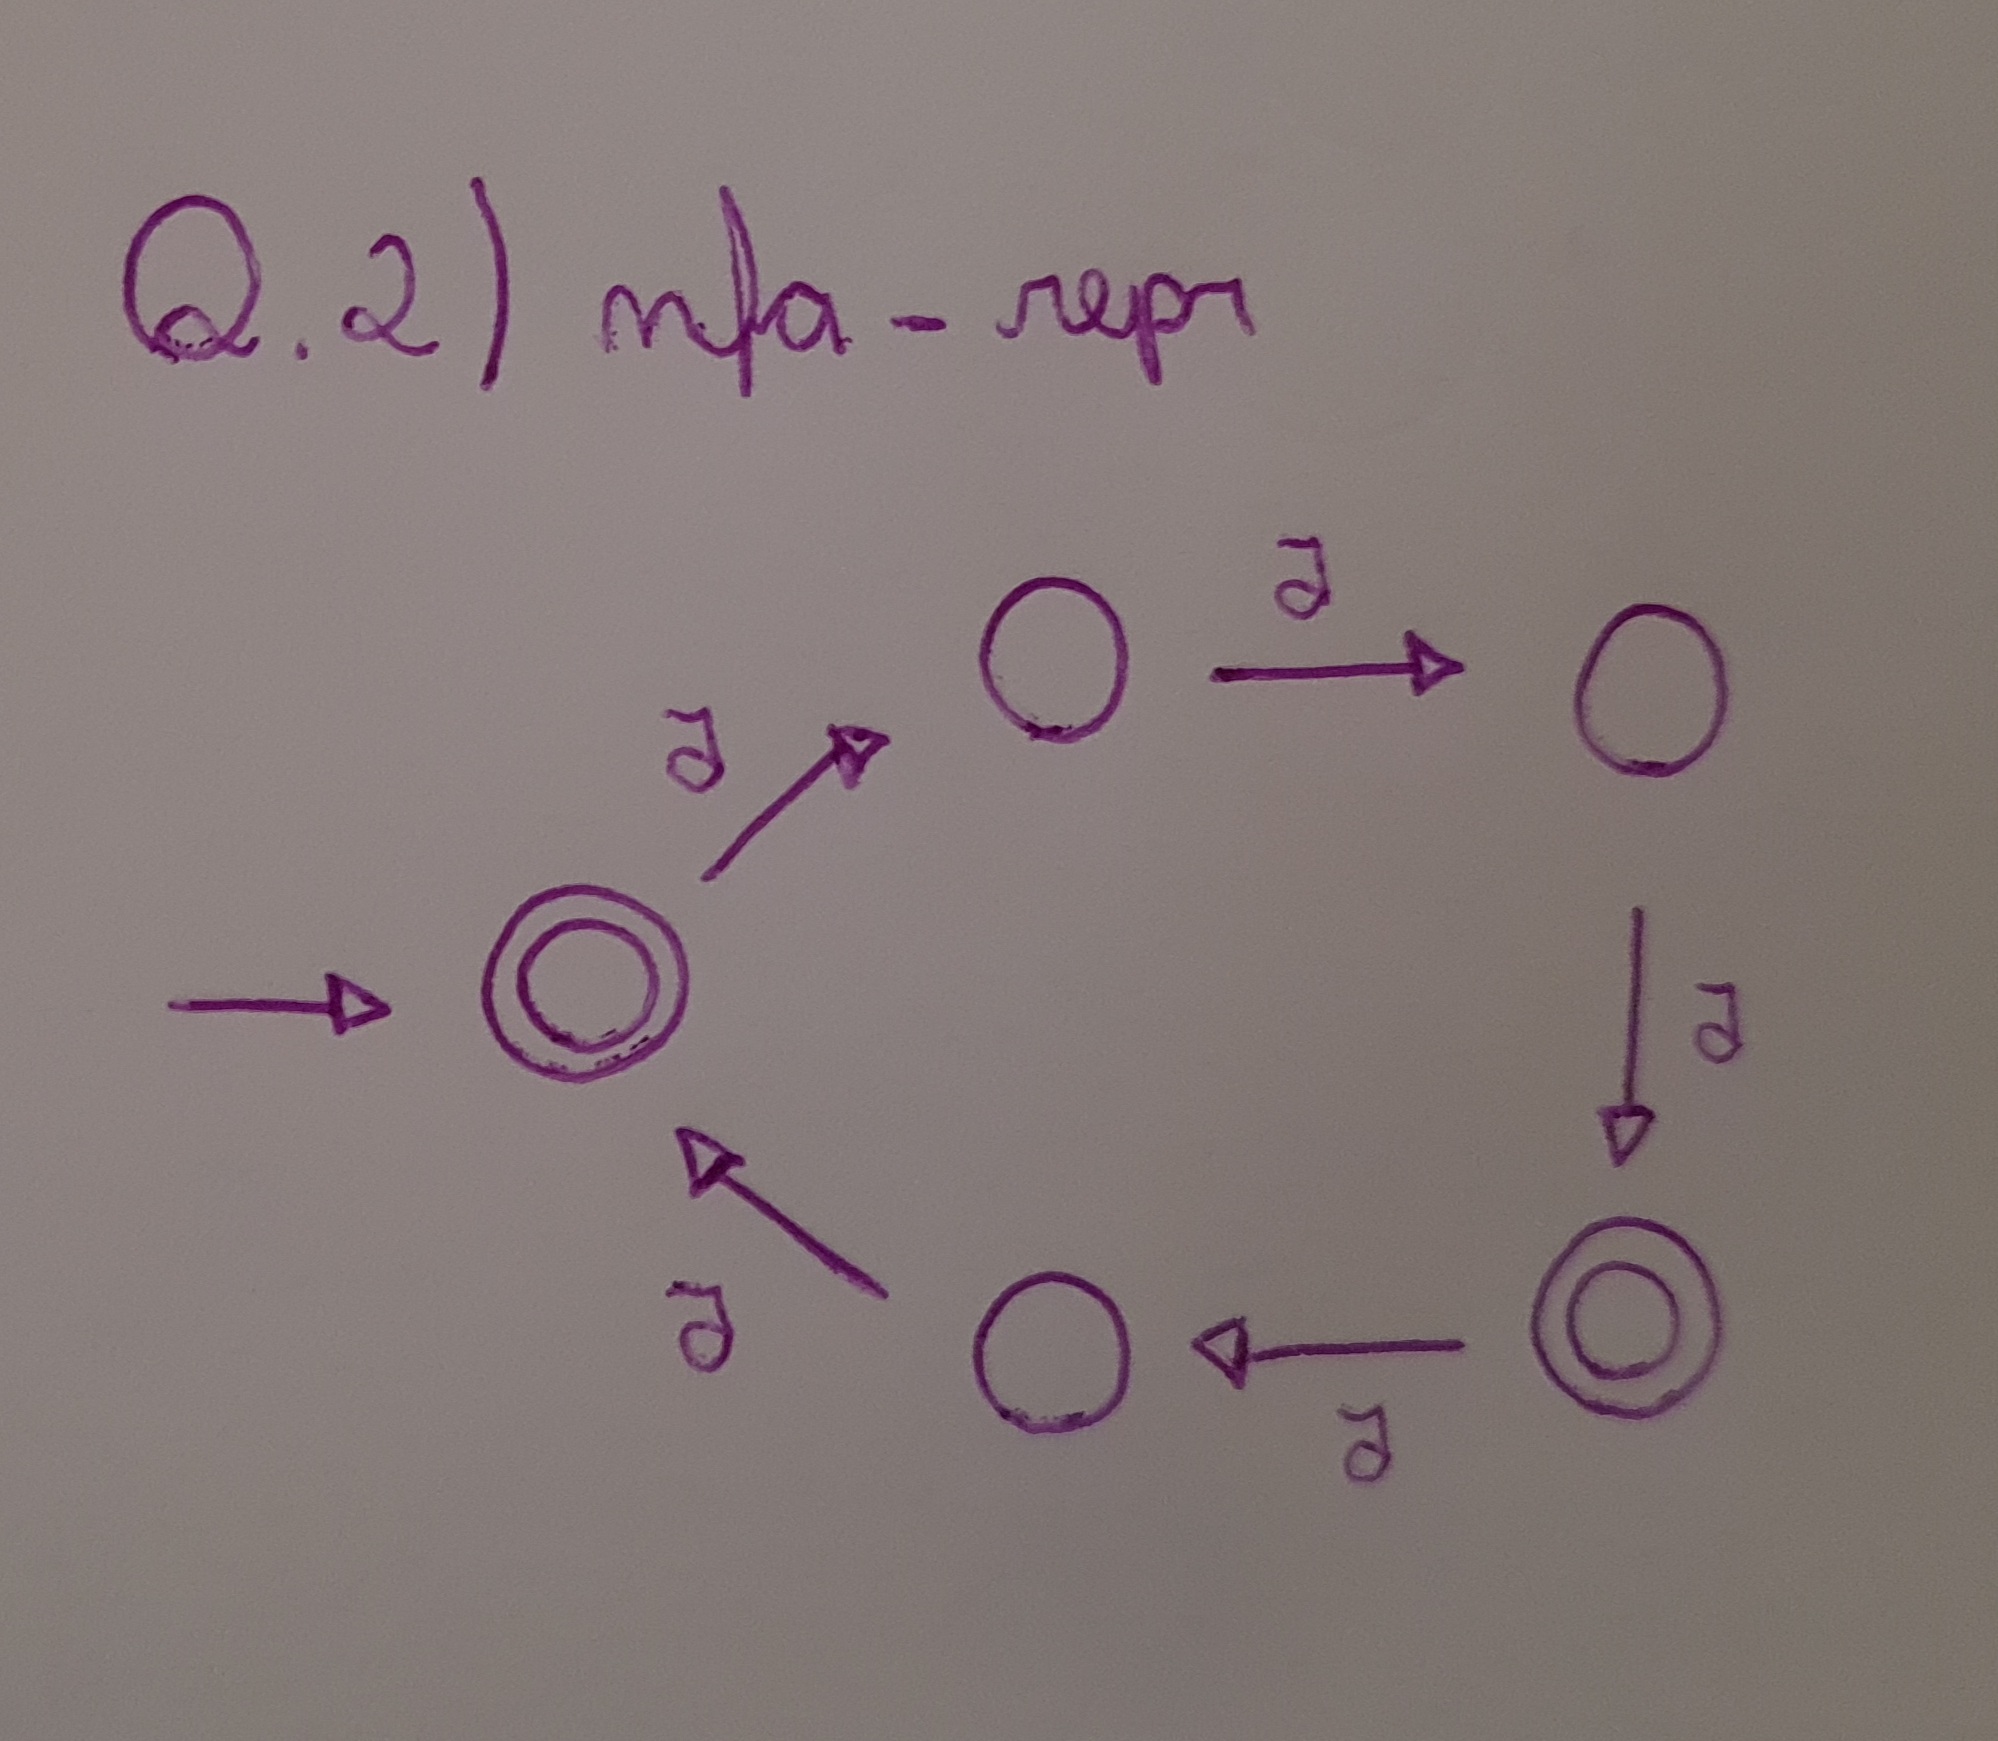 Q.2) nfa-repr
a
a
a
a
a